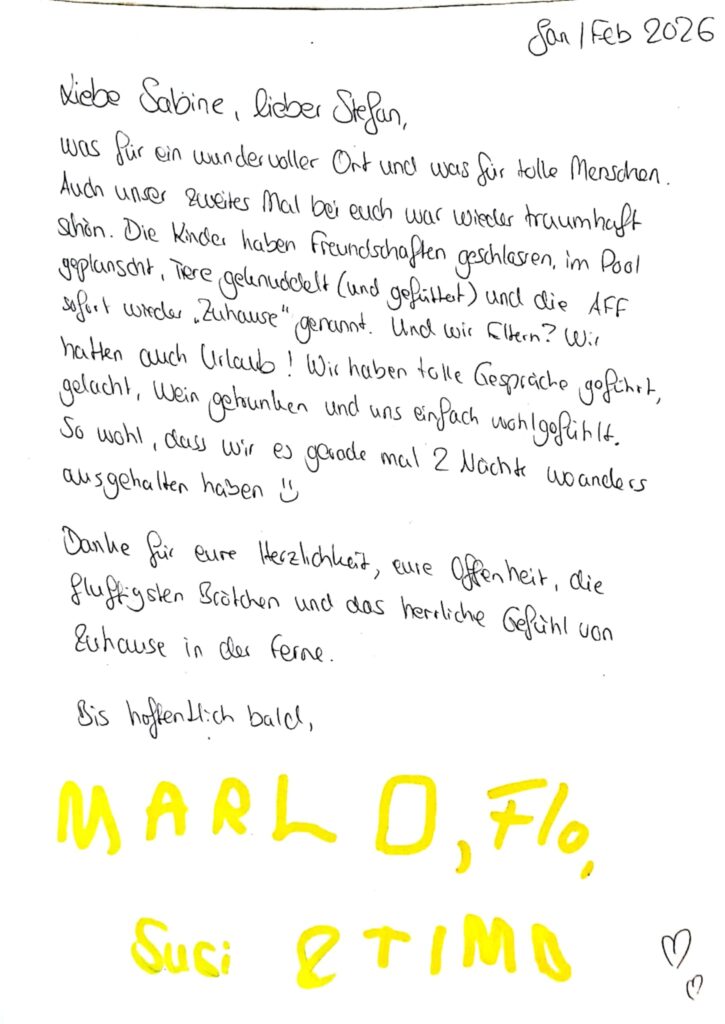 Jan / Feb 2026
Liebe Sabine, lieber Stefan,
was für ein wundervoller Ort und was für tolle Menschen.
Auch unser zweites Mal bei euch war wieder traumhaft
schön. Die Kinder haben Freundschaften geschlossen, im Pool
geplanscht, Tiere geknuddelt (und gefüttert) und die AFF
sofort wieder „Zuhause" genannt. Und wir Eltern? Wir
hatten auch Urlaub! Wir haben tolle Gespräche geführt,
gelacht, Wein getrunken und uns einfach wohlgefühlt.
So wohl, dass wir es gerade mal 2 Nächte woanders
ausgehalten haben
Danke für eure Herzlichkeit, eure Offenheit, die
fluffigsten Brötchen und das herrliche Gefühl von
Zuhause in der Ferne.
Bis hoffentlich bald,
MARLO, Flo,
Susi & TIMO